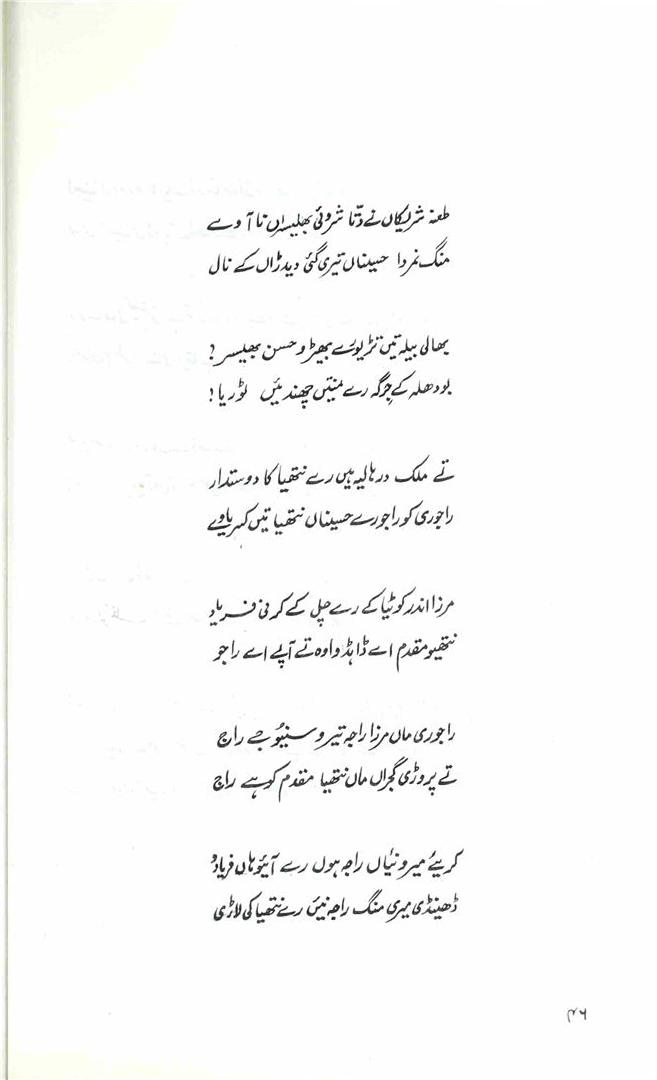 طعنہ شریکاں نے دتّا شروئی بھلیسراں نا آوے
منگ نمردا حسیناں تیری گئی دیدڑاں کے نال
بھالی بیلہ تیں تڑیوںے بھیڑو حسن بھیسر؟
بودھلہ کے جرگہ رے منتیں چھندئیں لوڑیا!
تے ملک درہالیہ ہیں رے نتھیا کا دوستدار
راجوری کو راجو رے حسیناں نتھیا تیں کسریاوے
مرزا اندر کوٹیا کے رے چل کے کرنی فریاد
نتھیو مقدم اے ڈاہڈو اوہ تے آپے اے راجو
راجوری ماں مرزا راجہ تیرو سنیوُ جے راج
تے پروڑی گجراں ماں نتھیا مقدم کو ہے راج
کریئے میرو نیّاں راجہ ہوں رے آئیو ہاں فریادو
ڈھینڈی میری منگ راجہ نیئں رے نتھیا کی لاڑی
۴۶